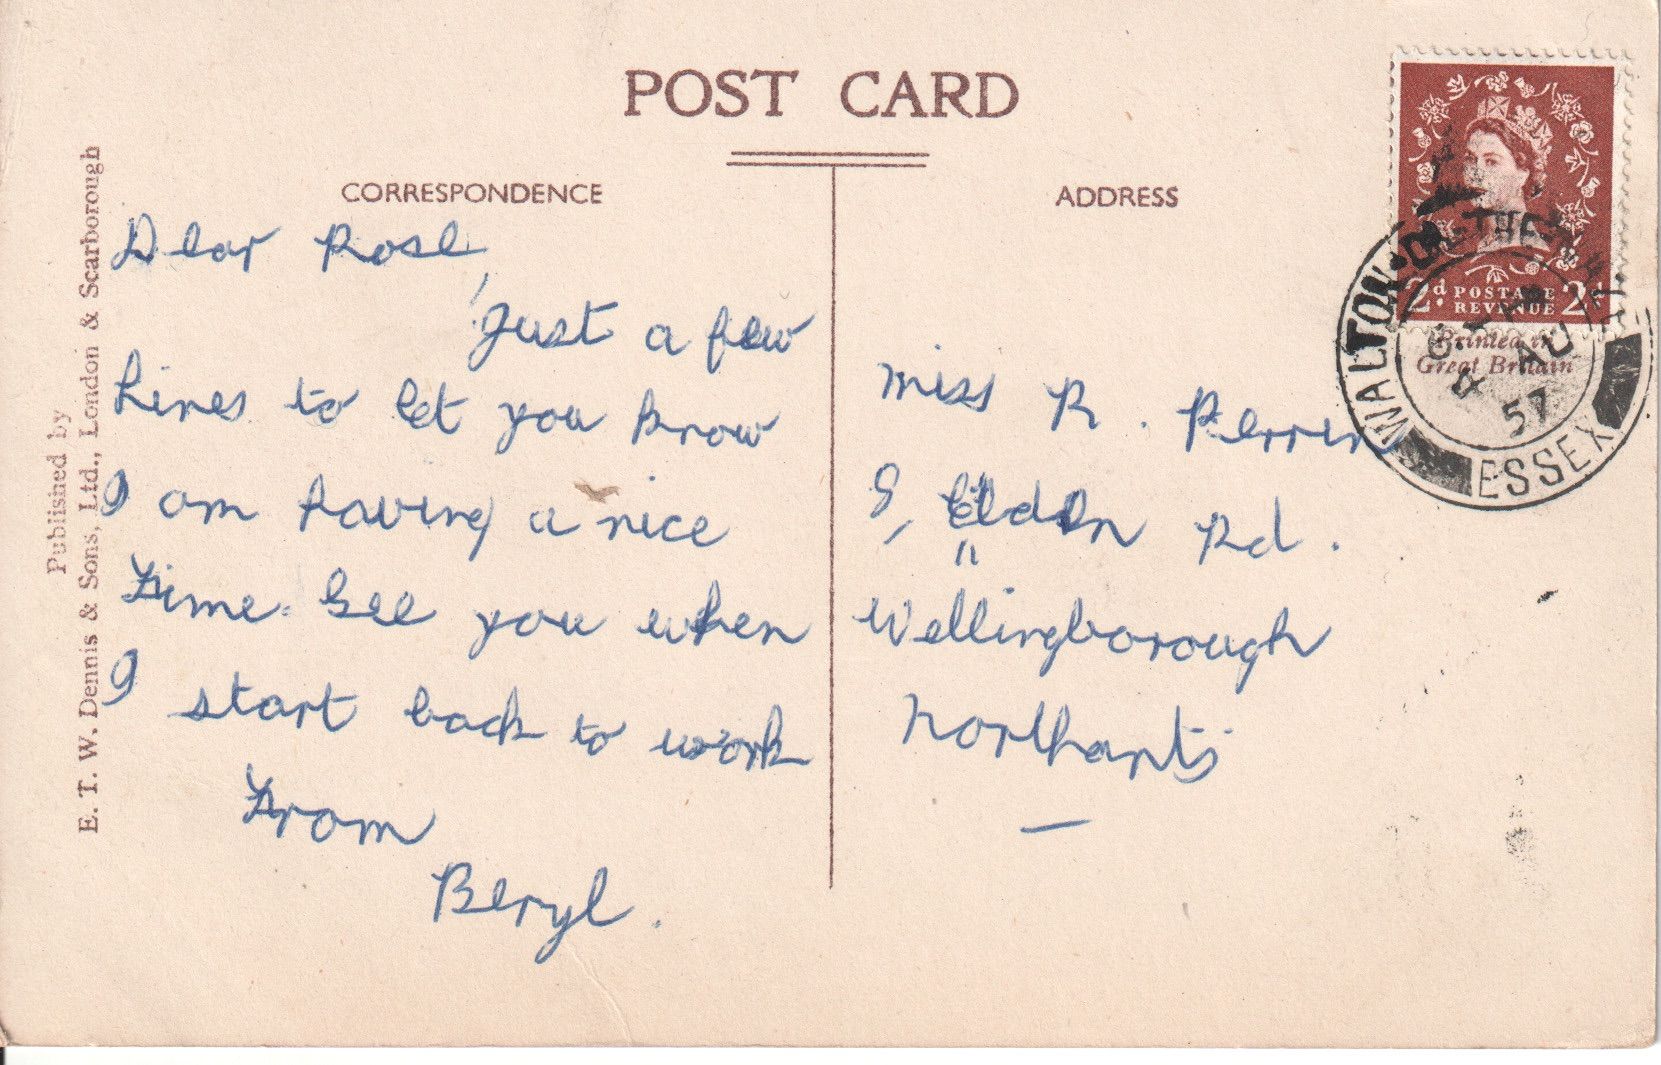 POST CARD
CORRESPONDENCE
ADDRESS
Published by
E. T. W. Dennis & Sons, Ltd., London & Scarborough
Dear Rose,
Just a few
lines to let you know
I am having a nice
time. See you when
I start back to work
From
Beryl.
Miss R. Perrin
Eldon Rd.
Wellingborough
Northants
2d POSTAGE 2d
REVENUE
Printed in
Great Britain
WALTON-ON-THE-NAZE
4 AU
57
ESSEX